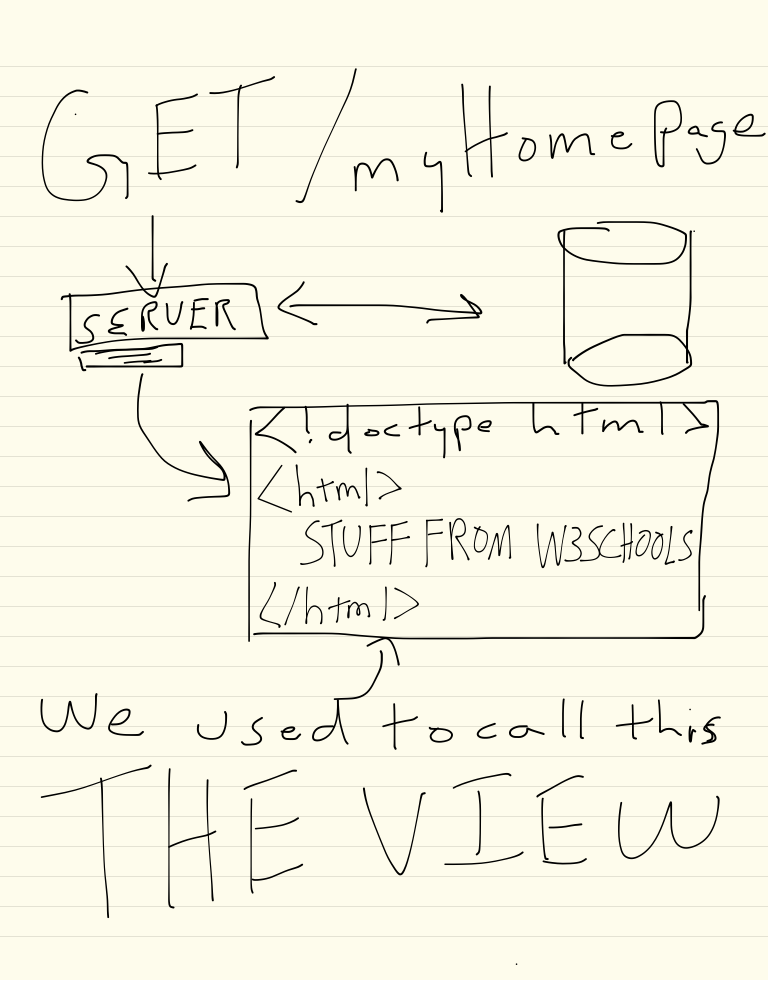 GET /myHomePage
SERVER
<!doctype html>
<html>
STUFF FROM W3SCHOOLS
</html>
We used to call this
THE VIEW